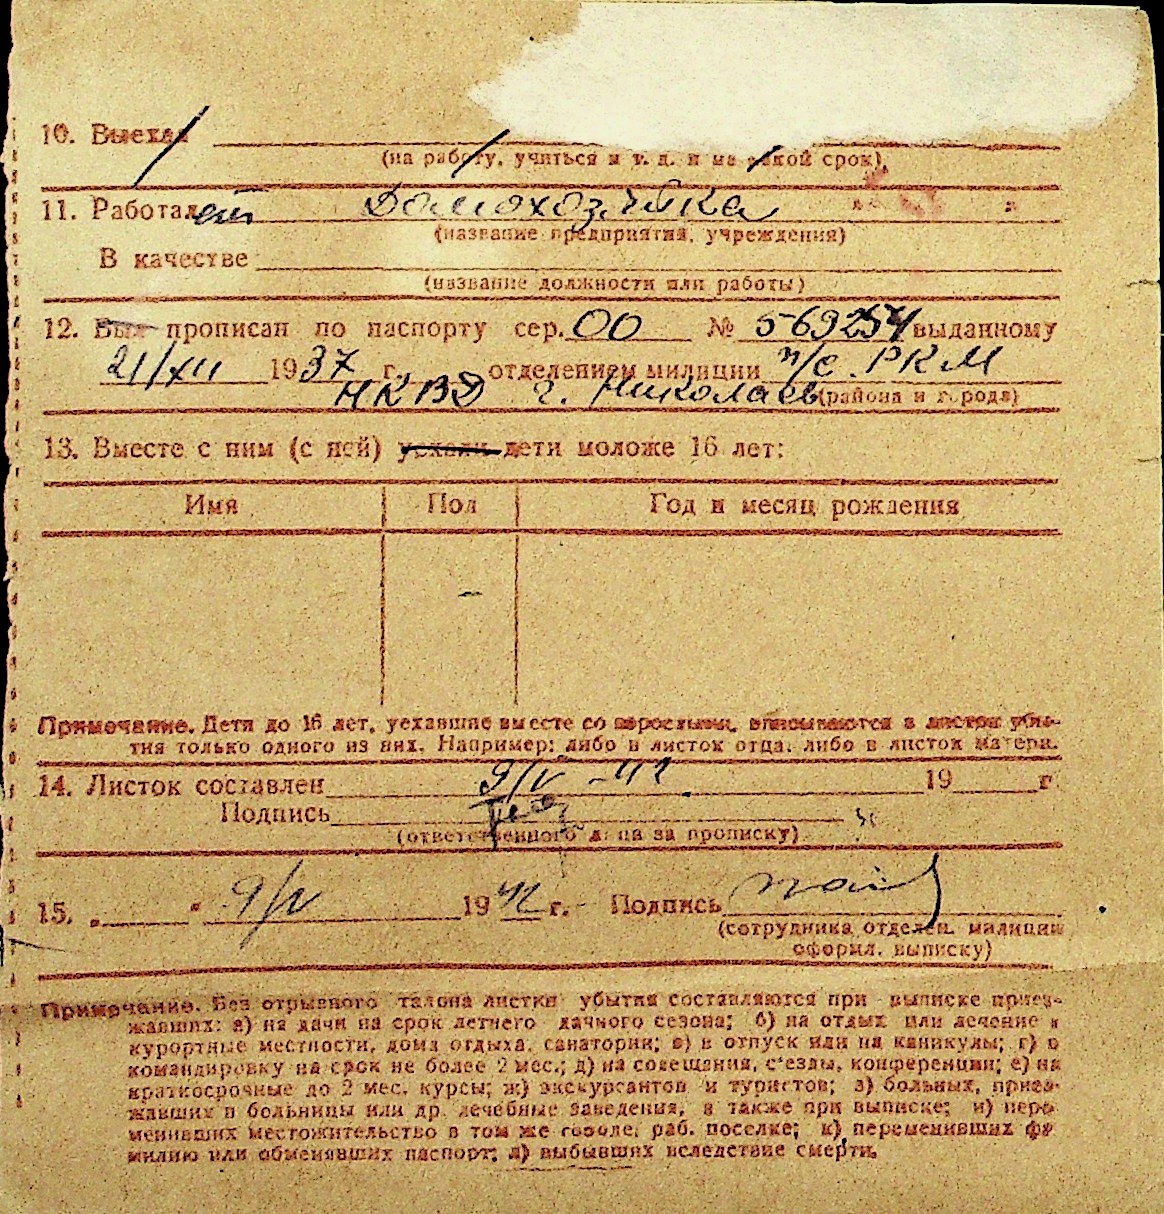 10. Выехал
(на работу, учиться и т. д. и на какой срок)
11. Работает Домохозяйка
(название предприятия, учреждения)
В качестве
(название должности или работы)
12. Был прописан по паспорту сер. ОО № 569254 выданному
21/XII 1937 г. отделением милиции п/с. РКМ
НКВД г. Николаев (района и города)
13. Вместе с ним (с ней) уехали дети моложе 16 лет:
Имя Пол Год и месяц рождения
–
Примечание. Дети до 16 лет, уехавшие вместе со взрослыми, вписываются в листок убы-
тия только одного из них. Например: либо в листок отца, либо в листок матери.
14. Листок составлен 9/V - 41 19 г.
Подпись
(ответственного лица за прописку)
15. „ " 9/V 19 г. Подпись
(сотрудника отделен. милиции
оформл. выписку)
Примечание. Без отрывного талона листки убытия составляются при выписке приез-
жавших: а) на дачи на срок летнего дачного сезона; б) на отдых или лечение в
курортные местности, дома отдыха, санатории; в) в отпуск или на каникулы; г) в
командировку на срок не более 2 мес.; д) на совещания, с'езды, конференции; е) на
краткосрочные до 2 мес. курсы; ж) экскурсантов и туристов; з) больных, приез-
жавших в больницы или др. лечебные заведения, а также при выписке; и) пере-
менивших местожительство в том же городе, раб. поселке; к) переменивших фа-
милию или обменявших паспорт; л) выбывших вследствие смерти.